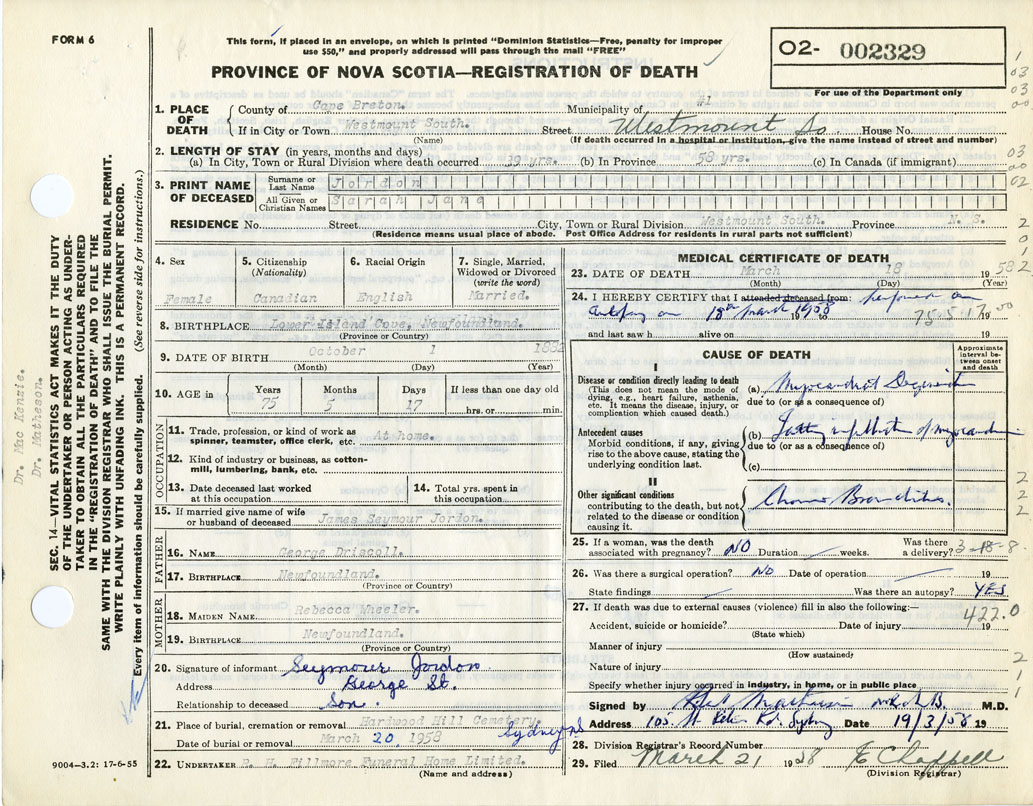 FORM 6
This form, if placed in an envelope, on which is printed "Dominion Statistics—Free, penalty for improper
use $50," and properly addressed will pass through the mail "FREE"
02- 002329
For use of the Department only
PROVINCE OF NOVA SCOTIA—REGISTRATION OF DEATH
1. PLACE OF DEATH
County of Cape Breton. Municipality of #1
If in City or Town Westmount South. Street Westmount So. House No.
(Name) (If death occurred in a hospital or institution, give name instead of street and number)
2. LENGTH OF STAY (in years, months and days)
(a) In City, Town or Rural Division where death occurred 39 yrs. (b) In Province 58 yrs. (c) In Canada (if immigrant)
3. PRINT NAME OF DECEASED
Surname or Last Name Jordon
All Given or Christian Names Sarah Jane
RESIDENCE No. Street City, Town or Rural Division Westmount South. Province N. S.
(Residence means usual place of abode. Post Office Address for residents in rural parts not sufficient)
4. Sex
Female
5. Citizenship
(Nationality)
Canadian
6. Racial Origin
English
7. Single, Married,
Widowed or Divorced
(write the word)
Married.
8. BIRTHPLACE Lower Island Cove, Newfoundland.
(Province or Country)
9. DATE OF BIRTH October 1 1882
(Month) (Day) (Year)
10. AGE in
Years Months Days If less than one day old
75 5 17 hrs. or min.
OCCUPATION
11. Trade, profession, or kind of work as
spinner, teamster, office clerk, etc. At home.
12. Kind of industry or business, as cotton-
mill, lumbering, bank, etc.
13. Date deceased last worked
at this occupation
14. Total yrs. spent in
this occupation
15. If married give name of wife
or husband of deceased James Seymour Jordon.
FATHER
16. NAME George Driscoll.
17. BIRTHPLACE Newfoundland.
(Province or Country)
MOTHER
18. MAIDEN NAME Rebecca Wheeler.
19. BIRTHPLACE Newfoundland.
(Province or Country)
20. Signature of informant Seymour Jordon
Address George St.
Relationship to deceased Son.
21. Place of burial, cremation or removal Hardwood Hill Cemetery.
Sydney NS
Date of burial or removal March 20, 1958
22. UNDERTAKER R. H. Fillmore Funeral Home Limited.
(Name and address)
MEDICAL CERTIFICATE OF DEATH
23. DATE OF DEATH March 18 1958
(Month) (Day) (Year)
24. I HEREBY CERTIFY that I attended deceased from: performed an
autopsy on 18th March 1958 to 19
75-5-17
and last saw h alive on 19
CAUSE OF DEATH
Approximate
interval be-
tween onset
and death
I
Disease or condition directly leading to death
(This does not mean the mode of
dying, e.g., heart failure, asthenia,
etc. It means the disease, injury, or
complication which caused death.)
(a) Myocardial
due to (or as a consequence of)
Antecedent causes
Morbid conditions, if any, giving
rise to the above cause, stating the
underlying condition last.
(b) Fatty infiltration of myocardium
due to (or as a consequence of)
(c)
II
Other significant conditions
contributing to the death, but not
related to the disease or condition
causing it.
Chronic Bronchitis.
25. If a woman, was the death
associated with pregnancy? NO Duration weeks. Was there
a delivery?
3-18-8
26. Was there a surgical operation? NO Date of operation 19
State findings Was there an autopsy? YES
27. If death was due to external causes (violence) fill in also the following:—
422.0
Accident, suicide or homicide? Date of injury 19
(State which)
Manner of injury
(How sustained)
Nature of injury
Specify whether injury occurred in industry, in home, or in public place
Signed by M.D.
Address 105 Sydney Date 19/3/58 19
28. Division Registrar's Record Number
29. Filed March 21 1958 E Chappell
(Division Registrar)
SEC. 14—VITAL STATISTICS ACT MAKES IT THE DUTY
OF THE UNDERTAKER OR PERSON ACTING AS UNDER-
TAKER TO OBTAIN ALL THE PARTICULARS REQUIRED
IN THE "REGISTRATION OF DEATH" AND TO FILE THE
SAME WITH THE DIVISION REGISTRAR WHO SHALL ISSUE THE BURIAL PERMIT.
WRITE PLAINLY WITH UNFADING INK. THIS IS A PERMANENT RECORD.
Every item of information should be carefully supplied. (See reverse side for instructions.)
Dr. Mac Kenzie.
Dr. Matheson.
9004-3.2: 17-6-55